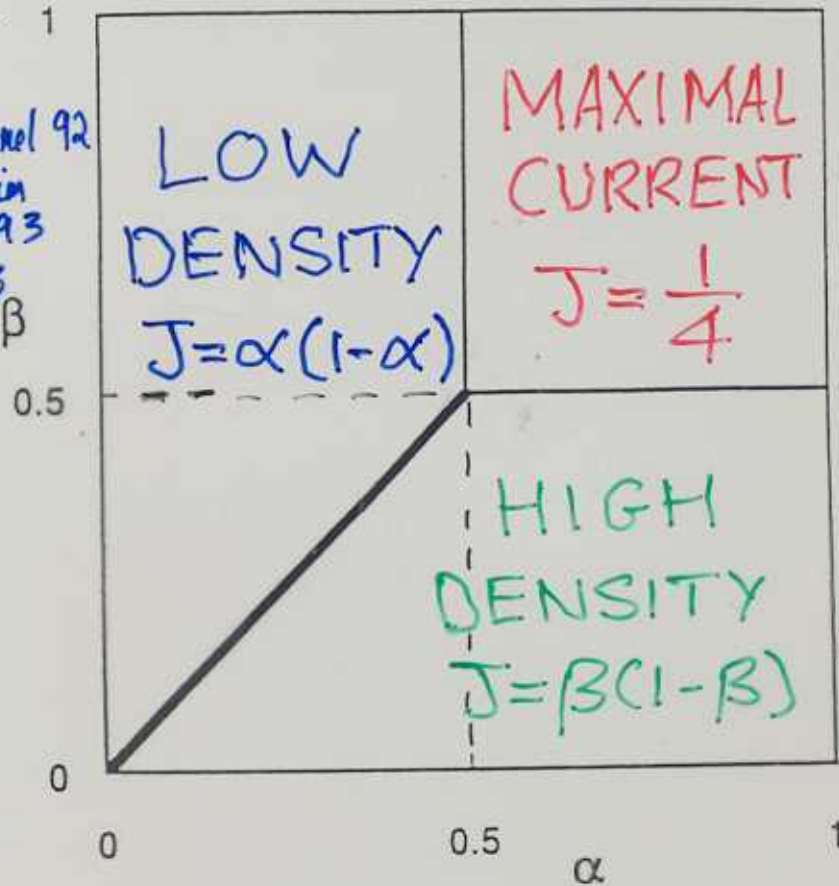 1
92
93
β
0.5
0
LOW
DENSITY
J=α(1-α)
MAXIMAL
CURRENT
J=1/4
HIGH
DENSITY
J=β(1-β)
0
0.5
α
1